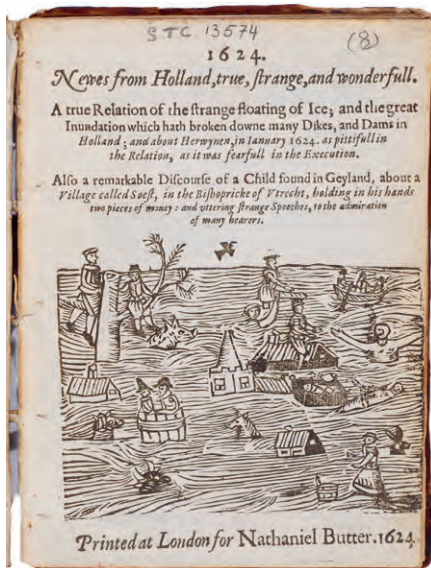 STC 13574
(8)
1624.
Newes from Holland, true, ſtrange, and wonderfull.
A true Relation of the ſtrange floating of Ice; and the great
Inundation which hath broken downe many Dikes, and Dams in
Holland; and about Herwynen, in Ianuary 1624. as pittifull in
the Relation, as it was fearfull in the Execution.
Alſo a remarkable Diſcourſe of a Child found in Geyland, about a
Village called Soeſt, in the Biſhopricke of Vtrecht, holding in his hands
two pieces of money: and vttering ſtrange Speeches, to the admiration
of many hearers.
Printed at London for Nathaniel Butter. 1624.